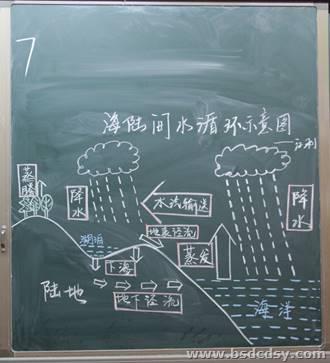 7
海陆间水循环示意图
蒸腾
降水
水汽输送
降水
湖泊
地表径流
蒸发
下渗
陆地
地下径流
海洋
www.bsdcdsy.com